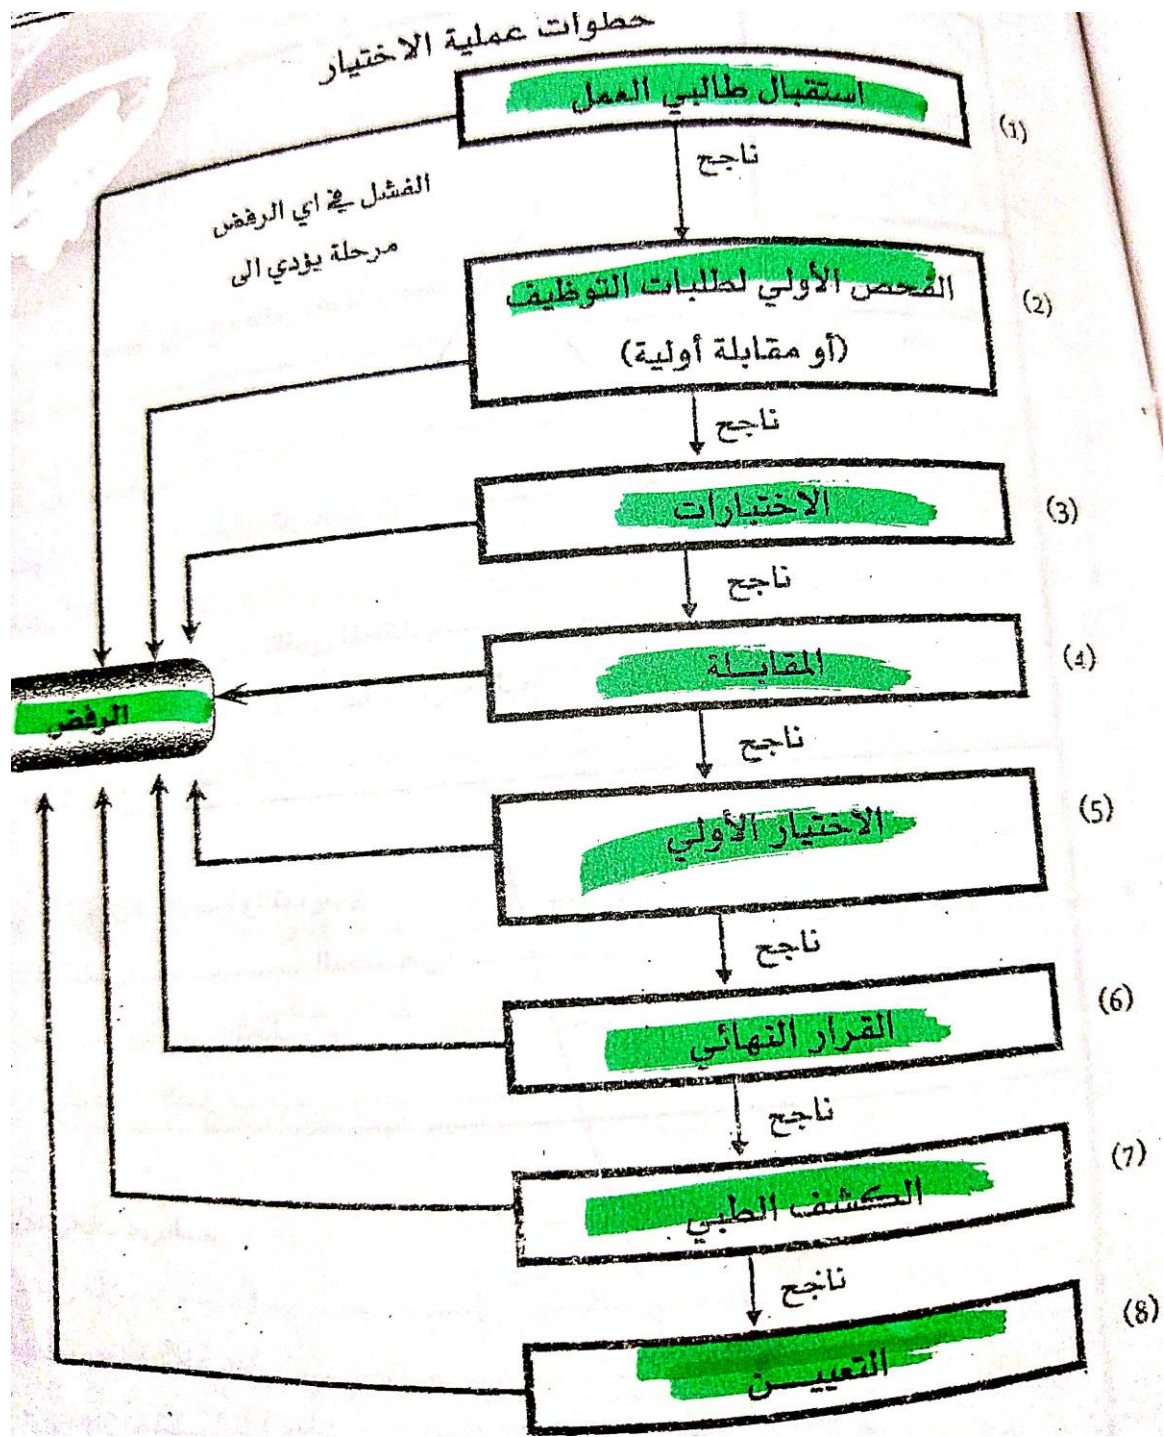 خطوات عملية الاختيار
استقبال طالبي العمل
(1)
ناجح
الفشل في اي الرفض
مرحلة يؤدي الى
الفحص الأولي لطلبات التوظيف
(أو مقابلة أولية)
(2)
ناجح
الاختبارات
(3)
ناجح
المقابـــلة
(4)
الرفض
ناجح
الاختيار الأولي
(5)
ناجح
القرار النهائي
(6)
ناجح
الكشف الطبي
(7)
ناجح
التعييـــن
(8)